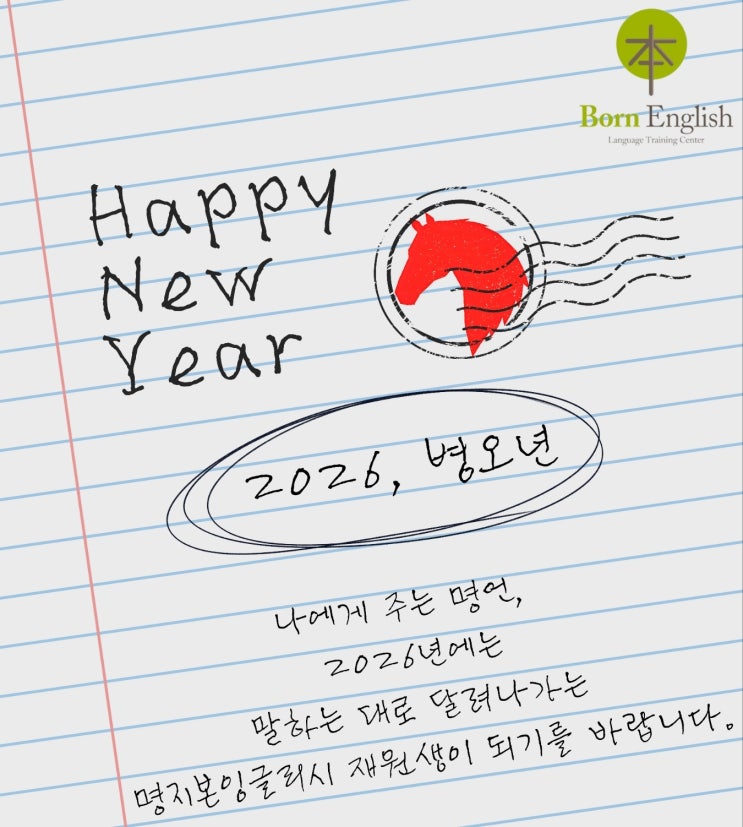 本
Born English
Language Training Center
Happy
New
Year
2026, 병오년
나에게 주는 명언,
2026년에는
말하는 대로 달려나가는
명지본잉글리시 재원생이 되기를 바랍니다.